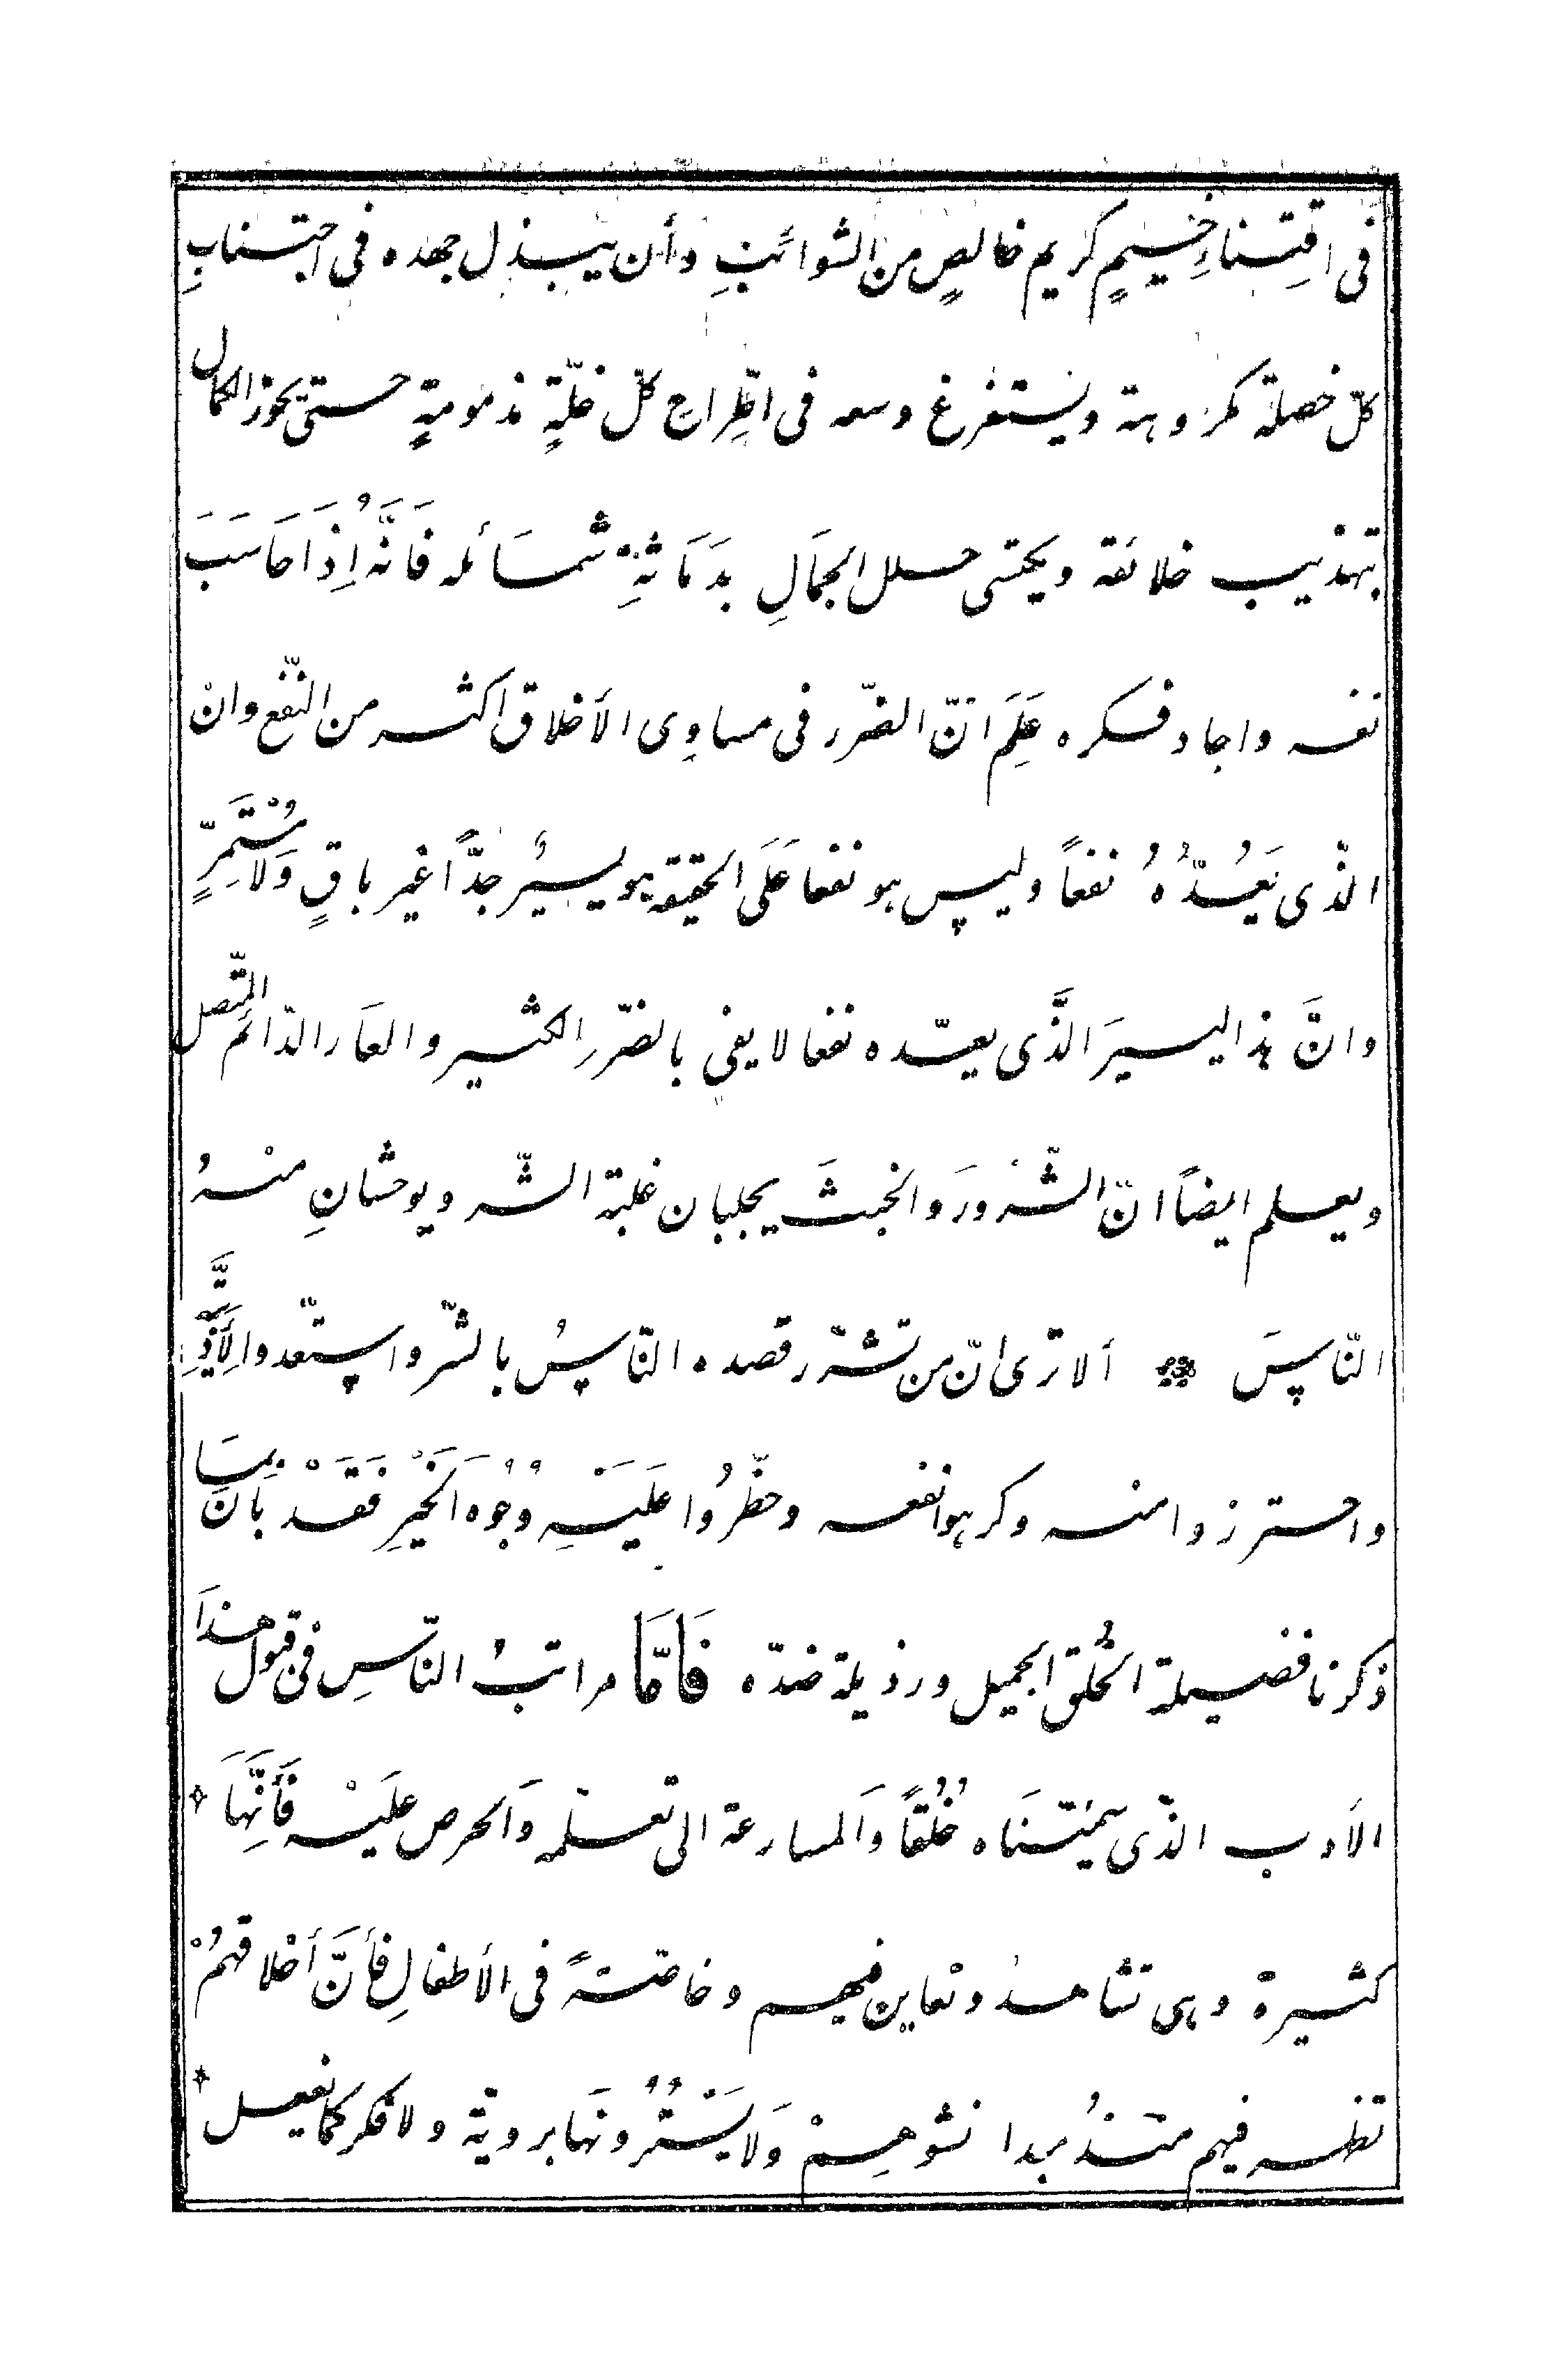 فى اقتِناءِ خِيمٍ كريم خالصٍ من الشوائبِ وأن يبذل جهده فى اجتنابِ
كلّ خصلة مكروهة ويستفرغ وسعه فى اطّراح كلّ خلّةٍ مذمومةٍ حتى يحوز الكمال
بتهذيب خلائقه ويكتسى حلل الجمَالِ بدَمَاثةِ شمَائله فَانَّهُ اِذَا حَاسَبَ
نفسه واجاد فكره عَلِمَ انّ الضّرر فى مساوِى الأخلاق اكثر من النّفع وانْ
الذّى يَعُدّهُ نفعاً وليس هو نفعا عَلَى الحقيقه هو يسيرٌ جدّاً غير باقٍ وَلا مُسْتَمِرٍّ
وانَّ هذا اليسيرَ الذَّى يعدّه نفعا لا يفى بالضّررِ الكثير والعَار الدّائم المتّصل
ويعلم ايضاً انّ الشّرورَ والخبثَ يجلبان غلبة الشّر ويوحشانِ منهُ
النّاسَ ألا ترى انّ من تشرّر قصده النّاسُ بالشّر واستعّدوا لِأَذِيَّةِ
واحترزوا منه وكرهوا نفعه وحظّرُوا عَلَيْهِ وُجُوْهَ الخَيْرِ فَقَدْ بَانَ بمِا
ذكرنا فضيلة الخُلق الجميل ورذيلة ضدّه فَامَّا مراتبُ النّاسِ فى قبول هذَا
الأدب الذّى سمّينَاه خُلُقاً وَالمسارعة الى تعلّمه وَالحرص علَيْه فَأنَّهَا
كثيرة وهى تشاهدُ وتعاين فيهم وخاصّةً فى الأطفالِ فأنَّ أخلاقهُمْ
تظهر فيهم منذُ مبدا نشوهِمْ وَلَا يَسْتُرُونَهَا بروية ولا فكر كما يفعل